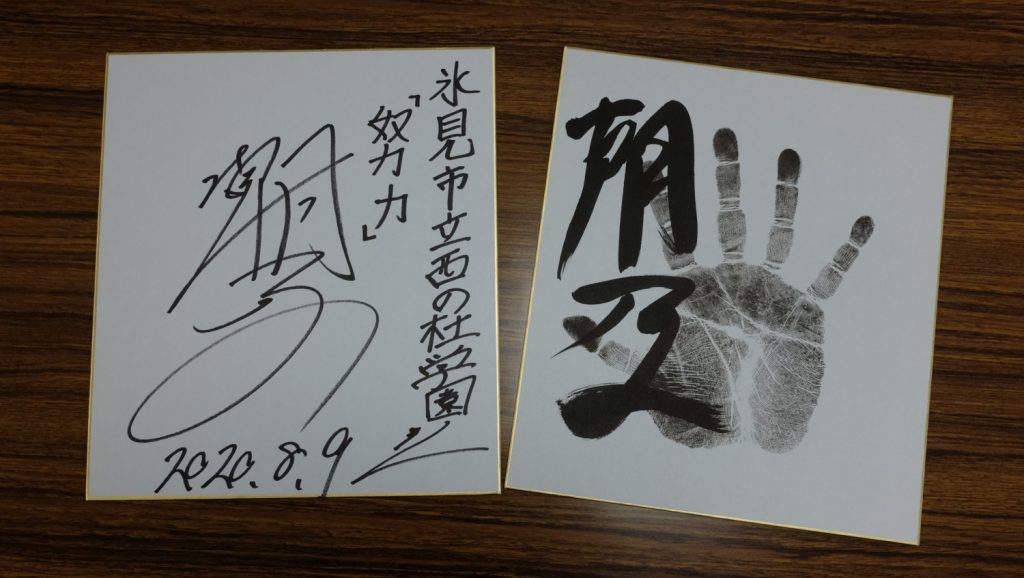 氷見市立西の杜学園
「努力」
2020.8.9
朝乃山